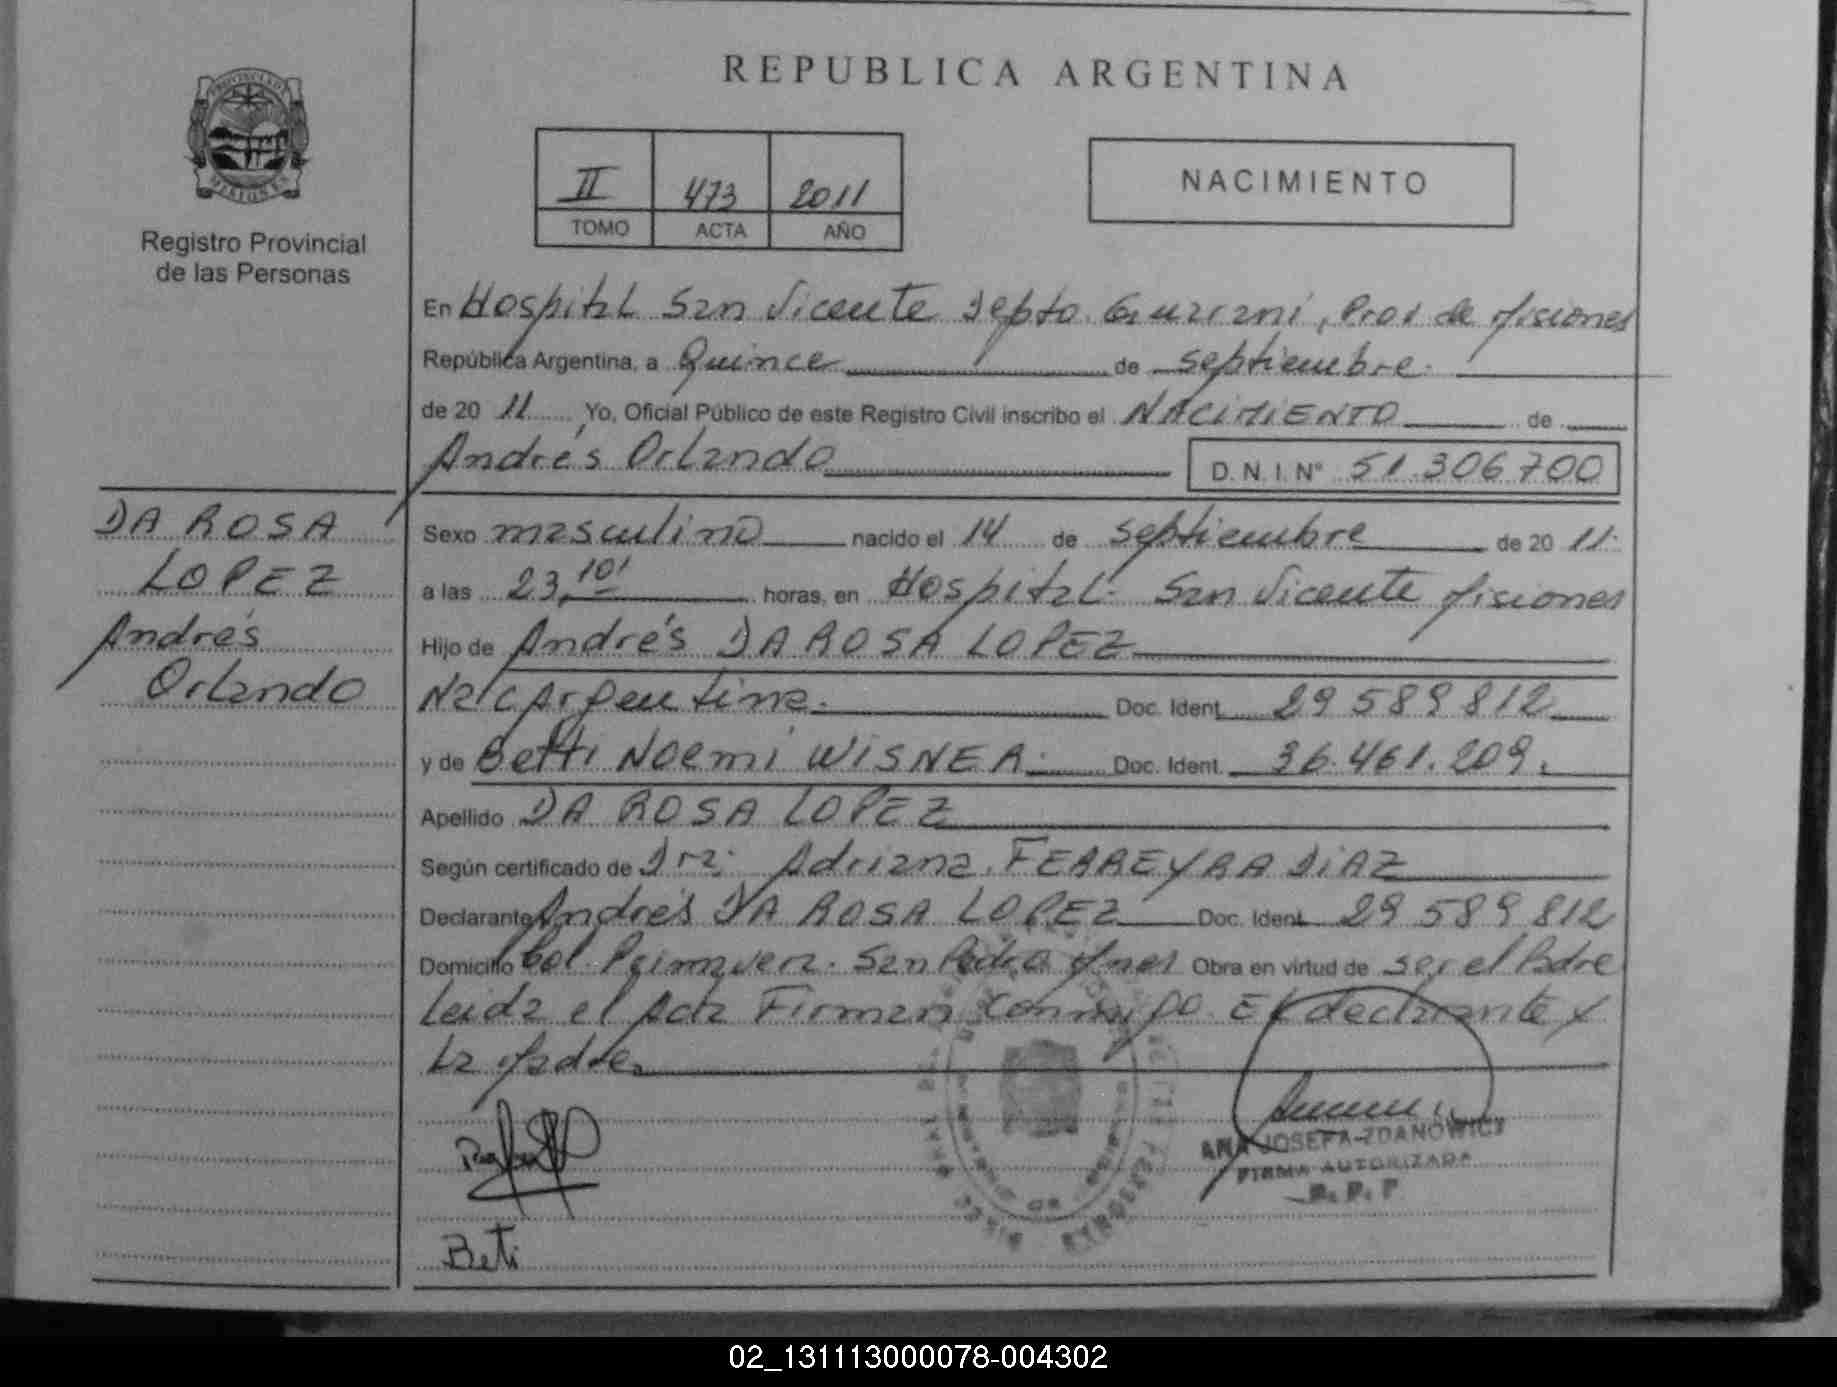 REPUBLICA ARGENTINA
PROVINCIA DE
MISIONES
Registro Provincial
de las Personas
II 473 2011
TOMO ACTA AÑO
NACIMIENTO
En Hospital San Vicente Depto. Guaraní, Prov de Misiones
República Argentina, a Quince de septiembre.
de 20 11 Yo, Oficial Público de este Registro Civil inscribo el NACIMIENTO de
Andrés Orlando D. N. I. Nº 51.306.700
DA ROSA
LOPEZ
Andrés
Orlando
Sexo masculino nacido el 14 de septiembre de 20 11.
a las 23,10' horas, en Hospital. San Vicente Misiones
Hijo de Andrés DA ROSA LOPEZ
Nac Argentina. Doc. Ident. 29 589 812
y de Betti Noemi WISNER. Doc. Ident. 36.461.209.
Apellido DA ROSA LOPEZ
Según certificado de Dra. Adriana FERREYRA DIAZ
Declarante Andrés DA ROSA LOPEZ Doc. Ident. 29 589 812
Domicilio Col. Primavera. San Pedro Mnes Obra en virtud de ser el Padre
Leida el Acta Firman Conmigo El declarante y
La Madre
ANA JOSEFA ZDANOWICZ
FIRMA AUTORIZADA
R. P. P
Beti
02_131113000078-004302